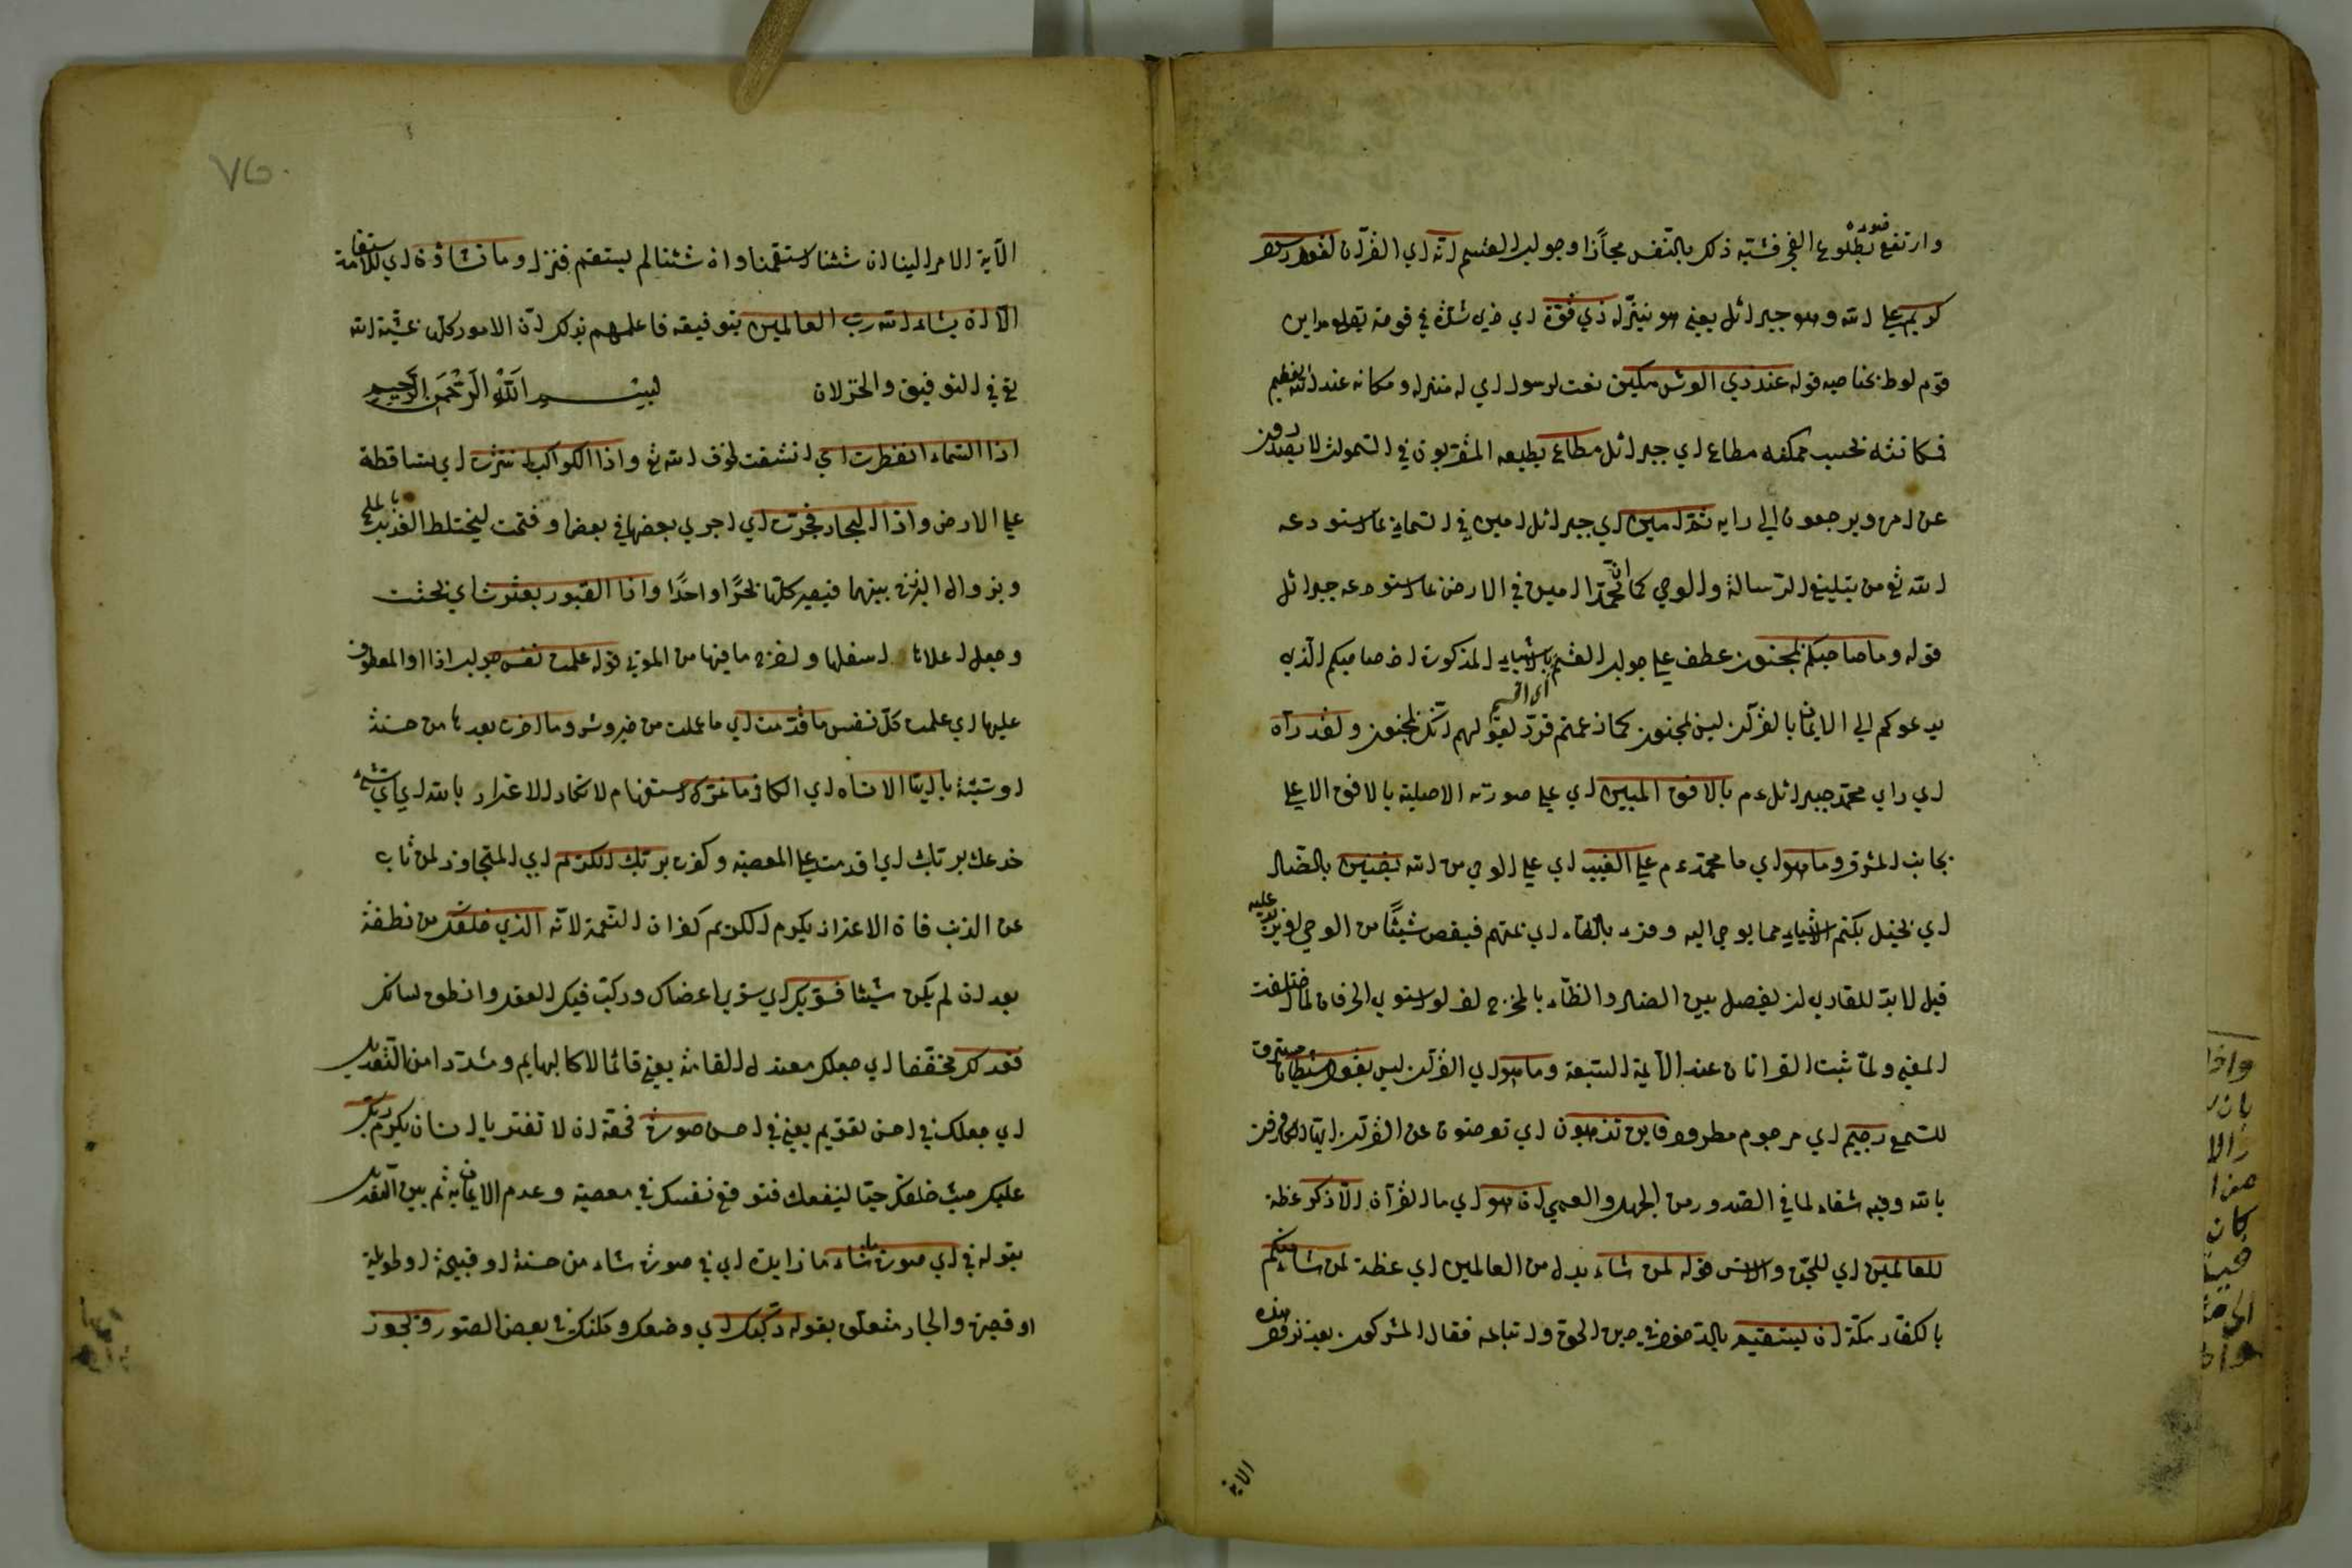 وارتفع ضوءه بطلوع الفجر فشبه ذلك بالتنفس مجازا وجواب القسم انه اي القرآن لقول رسول
كريم على الله وهو جبرائل يعني هو ينزله ذي قوة اي ذي شدة في قوته
قوم لوط بجناحيه قوله عند ذي العرش مكين نعت لرسول اي له منزلة ومكانة عند الله تعظيم
مطاع اي جبرائل مطاع يطيعه المقربون في السموات لا يصدرون
عن امره ويرجعون الى رايه ثم امين اي جبرائل امين في السماء على ما استودعه
الله تع من تبليغ الرسالة والوحي كما ان محمدا امين في الارض على ما استودعه جبرائل
قوله وما صاحبكم بمجنون عطف على جواب القسم اي اقسم بالاشياء المذكورة ان صاحبكم الذي
يدعوكم الى الايمان بالقرآن ليس بمجنون كما زعمتم فرد لقولهم انك لمجنون ولقد رآه
اي راى محمد جبرائل ءم بالافق المبين اي على صورته الاصلية بالافق الاعلى
بجانب المشرق وما هو اي ما محمد ءم على الغيب اي على الوحي من الله بضنين بالضاد
اي بخيل بكتم الاشياء مما يوحى اليه وقرء بالظاء اي بمتهم فينقص شيئا من الوحي او يزيد عليه
قيل لا بد للقارئ ان يفصل بين الضاد والظاء بالمخرج اذ لو استوى الحرفان لما اختلفت
المعنى ولما ثبت القراءتان عند الائمة السبعة وما هو اي القرآن ليس بقول شيطان مسترق
للسمع رجيم اي مرجوم مطرود فاين تذهبون اي تعرضون عن القرآن
بالله وفيه شفاء لما في الصدور من الجهل والعمى ان هو اي ما القرآن الا ذكر عظة
للعالمين اي للجن والانس قوله لمن شاء بدل من العالمين اي عظة لمن شاء منكم
بالكفار مكة ان يستقيم في دين الحق واتباعه فقال المشركون بعد نزول هذه
الآية
الآية الامر الينا ان شئنا استقمنا وان شئنا لم يستقم فنزل وما تشاؤن اي الاستقامة
الا ان يشاء الله رب العالمين بتوفيقه فاعلمهم بذلك ان الامور كلها بمشية الله
تع في التوفيق والخذلان بسم الله الرحمن الرحيم
اذا السماء انفطرت اي انشقت لخوف الله تع واذا الكواكب انتثرت اي تساقطة
على الارض واذا البحار فجرت اي اجري بعضها في بعض او فتحت ليختلط العذب بالملح
وبزوال البرزخ بينهما فيصير كلها بحرا واحدا واذا القبور بعثرت اي بحثت
وجعل اعلاها اسفلها واخرج ما فيها من الموتى قوله علمت نفس جواب اذا والمعطوف
عليها اي علمت كل نفس ما قدمت اي ما عملت من خير وشر وما اخرت بعدها من حسنة
او سيئة يا ايها الانسان اي الكافر ما غرك استفهام لانكار الاغترار بالله اي اي شيء
خدعك بربك اي اقدمت على المعصية وكفرت بربك الكريم اي المتجاوز لمن تاب
عن الذنب فان الاغترار بكرم الكريم كفران النعمة لانه الذي خلقك من نطفة
بعد ان لم يكن شيئا فسويك اي سوى اعضاك وركب فيك العقل وانطق لسانك
فعدلك مخففا اي جعلك معتدل القامة يعني قائما لا كالبهايم ومشددا من التعديل
اي جعلك في احسن تقويم يعني في احسن صورة فحقه ان لا تغتر يا انسان بكرم ربك
عليك حيث خلقك حيا لينفعك فتوقع نفسك في معصية وعدم الايمان به ثم بين التعديل
بقوله في اي صورة ما شاء ما زايدة اي في صورة شاء من حسنة او قبيحة او طويلة
او قصيرة والجار متعلق بقوله ركبك اي وضعك ومكنك في بعض الصور ويجوز